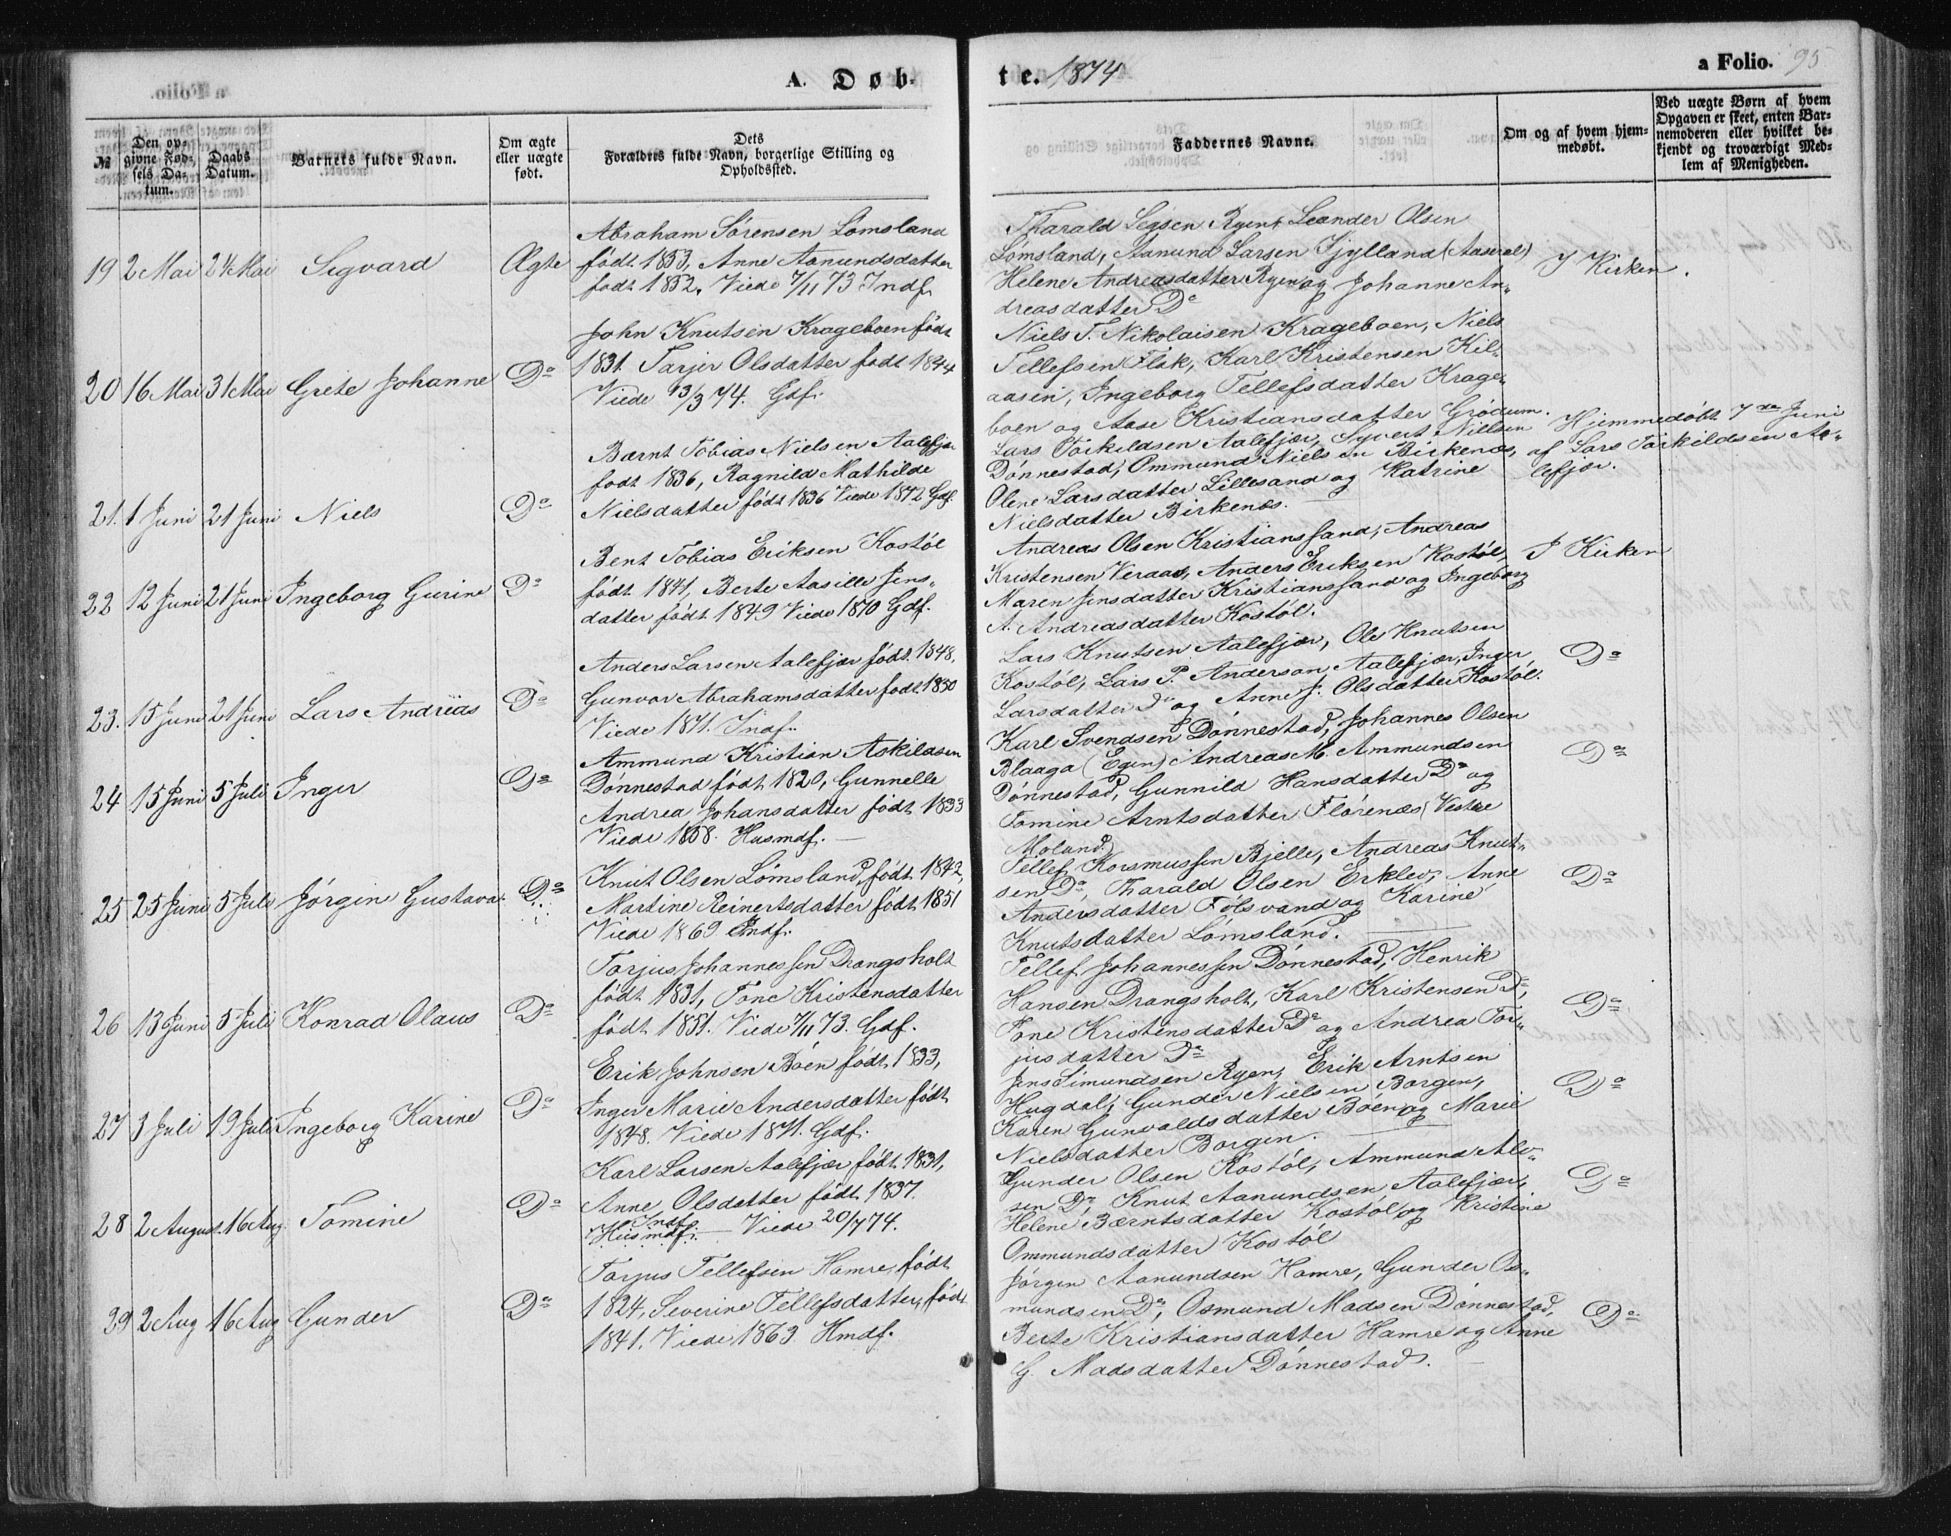 A. Døb-
te. 1874
a Folio. 95
№
Den op-
givne Fød-
sels Da-
tum.
Daabs
Datum.
Barnets fulde Navn.
Om ægte
eller uægte
født.
Dets
Forældres fulde Navn, borgerlige Stilling og
Opholdssted.
Faddernes Navne.
Om og af hvem hjem-
medøbt.
Ved uægte Børn af hvem
Opgaven er skeet, enten Bar-
nemoderen eller hvilket be-
kjendt og troværdigt Med-
lem af Menigheden.
19 2 Mai 24 Mai Sigvard Ægte
Abraham Sørensen Lømsland
født 1853, Anne Aanundsdatter
født 1852. Viede 7/11 73 Indf.
Tharald Ryen, Leander Olsen
Lømsland, Aanund Larsen Kjylland (Aaseral)
Helene Andreasdatter Ryen og Johanne An-
dreasdatter Do
I Kirken.
20 16 Mai 31 Mai Grete Johanne Do
John Knutsen Krageboen født
1831. Tarjer Olsdatter født 1844
Viede 13/3 74. Gdf.
Niels T. Nikolaisen Krageboen, Niels
Tellefsen Flak, Karl Kristensen Kil-
aasen, Ingeborg Tellefsdatter Krage-
boen og Aase Kristiansdatter Grødum.
21. 1 Juni 21 Juni Niels Do
Bærnt Tobias Nielsen Aalefjær
født 1836, Ragnild Mathilde
Nielsdatter født 1836 Viede 1872 Gdf.
Lars Torkildsen Aalefjær, Syvert Nielsen
Dønnestad, Ommund Nielsen Birkenæs,
Olene Larsdatter Lillesand og Katrine
Nielsdatter Birkenes.
Hjemmedøbt 7de Juni
af Lars Torkildsen Aa-
lefjær.
22 12 Juni 21 Juni Ingeborg Gurine Do
Bent Tobias Eriksen Kostøl
født 1841, Berte Aasille Jens-
datter født 1849 Viede 1870 Gdf.
Andreas Olsen Kristianssand, Andreas
Kristensen Veraas, Anders Eriksen Kostøl,
Maren Jensdatter Kristianssand og Ingeborg
A. Andreasdatter Kostøl.
I Kirken
23. 15 Juni 21 Juni Lars Andreas Do
Anders Larsen Aalefjær født 1848,
Gunvor Abrahamsdatter født 1850
Viede 1871. Indf.
Lars Knutsen Aalefjær, Ole Knutsen
Kostøl, Lars P. Anderson Aalefjær, Inger
Larsdatter Do og Anne J. Olsdatter Kostøl.
Do
24 15 Juni 5 Juli Inger Do
Ammund Kristian Askildsen
Dønnestad født 1820, Gunnelle
Andrea Johansdatter født 1833
Viede 1858. Husmdf. —
Karl Svendsen Dønnestad, Johannes Olsen
Blaaga (Egen) Andreas M. Ammundsen
Dønnestad, Gunnild Hansdatter Do og
Tomine Arntsdatter Flørenæs (Vestre
Moland)
Do
25 25 Juni 5 Juli Jørgine Gustava Do
Knut Olsen Lømsland, født 1842,
Martine Reinertsdatter født 1851
Viede 1869 Indf.
Tellef Korsmussen Bjelle, Andreas Knut-
sen Do, Tharald Olsen Erklev, Anne
Andersdatter Følsvand og Karine
Knutsdatter Lømsland.
Do
26 13 Juni 5 Juli Konrad Olaus Do
Torjus Johannessen Drangsholt
født 1831, Tone Kristensdatter
født 1851. Viede 7/11 73. Gdf.
Tellef Johannessen Dønnestad, Henrik
Hansen Drangsholt, Karl Kristensen Do,
Tone Kristensdatter Do og Andrea Tor-
jusdatter Do
Do
27 3 Juli 19 Juli Ingeborg Karine Do
Erik Johnsen Bøen født 1833,
Inger Marie Andersdatter født
1848. Viede 1871. Gdf.
Jens Simundsen Ryen, Erik Arntsen
Hugdal, Gunder Nielsen Borgen,
Karen Gunvaldsdatter Bøen og Marie
Nielsdatter Borgen.
Do
28 2 August. 16 Aug. Tomine Do
Karl Larsen Aalefjær født 1831,
Anne Olsdatter født 1837.
Indf.
Husmdf. — Viede 20/7 74.
Gunder Olsen Kostøl, Ammund Alv-
sen Do, Knut Aanundsen Aalefjær,
Helene Bærntsdatter Kostøl og Kristine
Ommundsdatter Kostøl
Do
29 2 Aug 16 Aug Gunder Do
Torjus Tellefsen Hamre, født
1824, Severine Tellefsdatter, født
1841. Viede 1863. Hmdf.
Jørgen Aanundsen Hamre, Gunder Os-
mundsen Do, Osmund Madsen Dønnestad,
Berte Kristiansdatter Hamre og Anne
G. Madsdatter Dønnestad.
Do